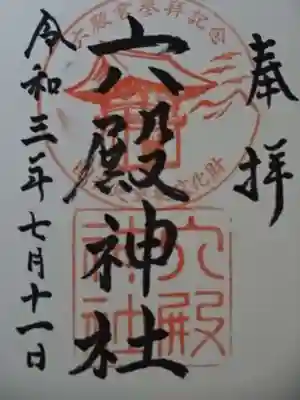 奉拝
六殿神社
令和三年七月十一日
六殿宮参拝記念
文化財
六殿
神社